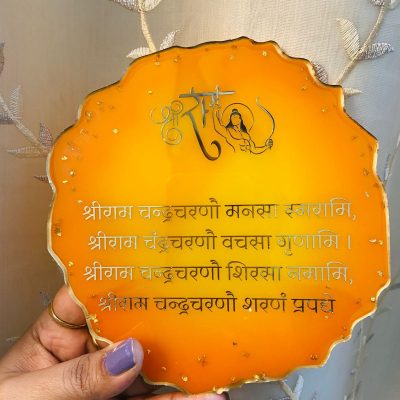 श्री राम
श्रीराम चन्द्रचरणौ मनसा स्मरामि,
श्रीराम चंद्रचरणौ वचसा गुणामि ।
श्रीराम चन्द्रचरणौ शिरसा नमामि,
श्रीराम चन्द्रचरणौ शरणं प्रपद्ये